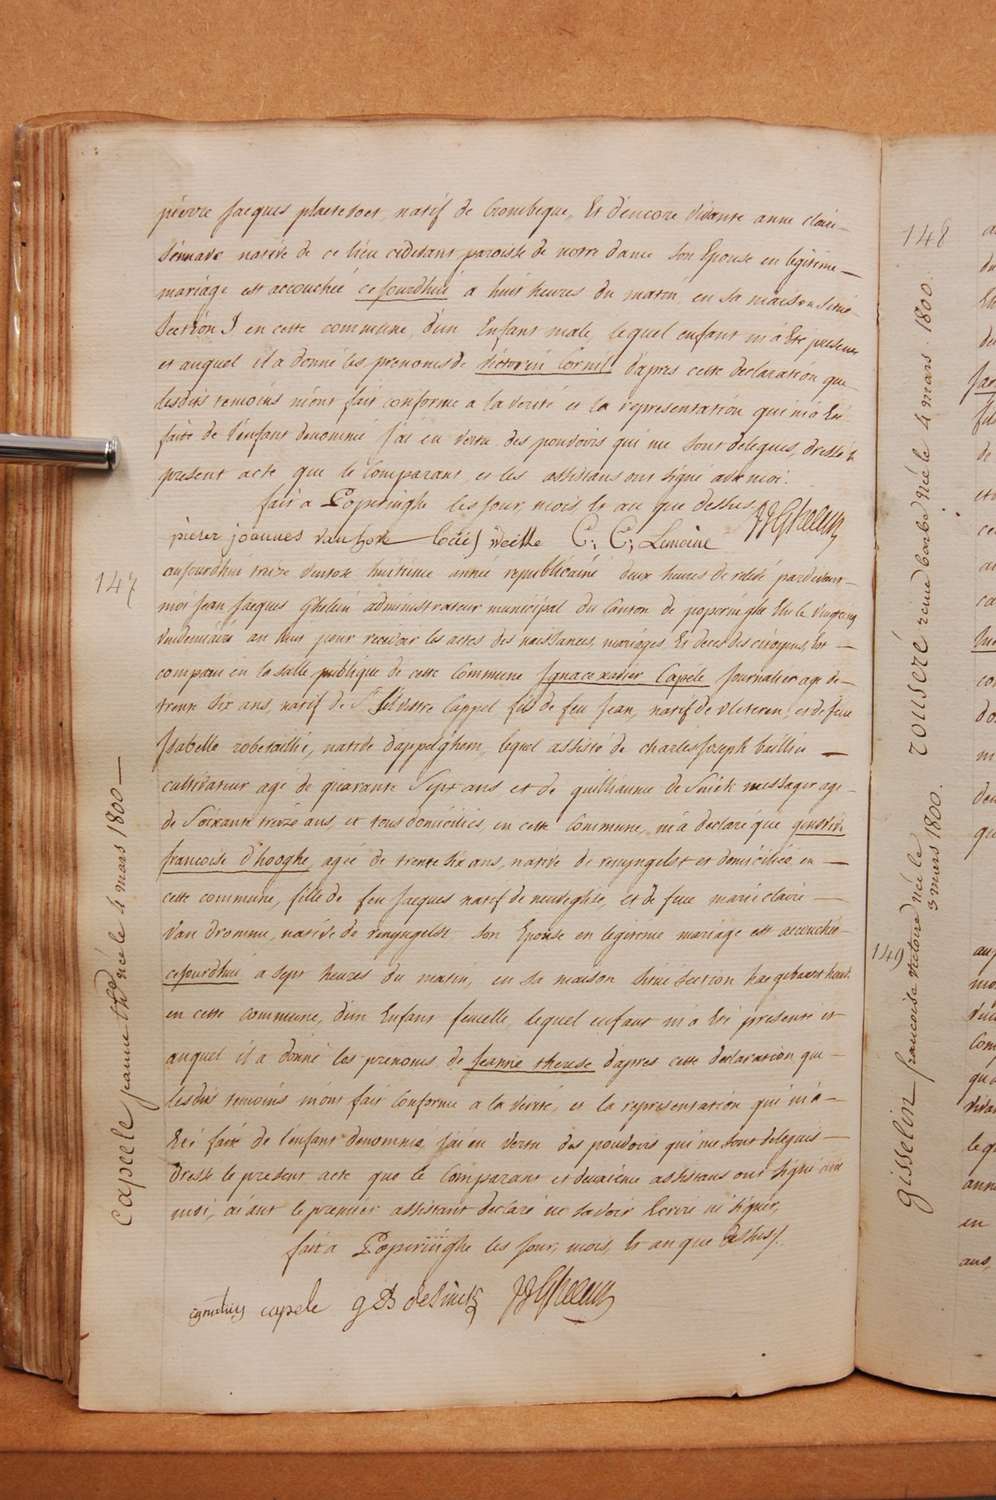 pierre Jacques plaetevoet, natif de Crombeque, Et d'encore vivante anne claire
native de ce lieu cidevant paroisse de notre dame son Epouse en legitime
mariage est accouchée cejourdhui a huit heures du matin, en sa maison située
Section J en cette commune, d'un Enfant male, lequel enfant m'a Eté presenté
et auquel il a donné les prenoms de victorin Cornil d'apres cette declaration que
lesdits temoins m'ont fait conforme a la verité et la representation qui m'a Eté
faite de l'enfant denommé j'ai en vertu des pouvoirs qui me sont delegués, dressé le
present acte que le Comparant, et les assistans ont signé avec moi.
fait a Poperinghe les jour, mois et an que dessus
pieter joannes C: C: Lemoine JJGhelein
147
aujourdhui treize ventose huitieme année republicaine deux heures de relevé pardevant
moi Jean Jacques Ghelein administrateur municipal du Canton de poperinghe Elu le vingt cinq
vendemiaire an huit pour recevoir les actes des naissances, mariages, Et deces des citoyens, est
comparu en la salle publique de cette Commune Ignace xavier Capele Journalier age de
trente six ans, natif de St Silvestre Cappel fils de feu Jean, natif de vleteren, et de feue
Isabelle robetaillie, native d'appelghem, lequel assisté de charles Joseph baillie
cultivateur age de quarante Sept ans et de guilliaume de Smidt messager age
de Soixante treize ans, et tous domiciliés, en cette Commune, m'a declaré que
francoise D'hooghe, agée de trente six ans, native de renyngelst et domiciliée en
cette commune, fille de feu Jacques natif de neuteglise, et de feue marie claire
Van Dromme, native de renyngelst, son Epouse en legitime mariage est accouchée
cejourdhui a sept heures du matin, en sa maison située Section
en cette commune, d'un Enfant femelle, lequel enfant m'a Eté presenté et
auquel il a donné les prenoms de Jeanne therese d'apres cette declaration que
lesdits temoins m'ont fait Conforme a la verité, et la representation qui m'a
Eté faite de l'enfant denommé, j'ai en vertu des pouvoirs qui me sont delegués
Dressé le present acte que le Comparant et deuxieme assistans ont signé avec
moi, aiant le premier assistant declaré ne savoir Ecrire ni signer,
fait a Poperinghe les jour, mois, Et an que dessus.
ignatius capele g D desmidt JJGhelein
capeele jeanne thse née le 4 mars 1800
148
rousere rene barbe née le 4 mars. 1800.
149
gisselin francoise victoire née le
3 mars 1800.